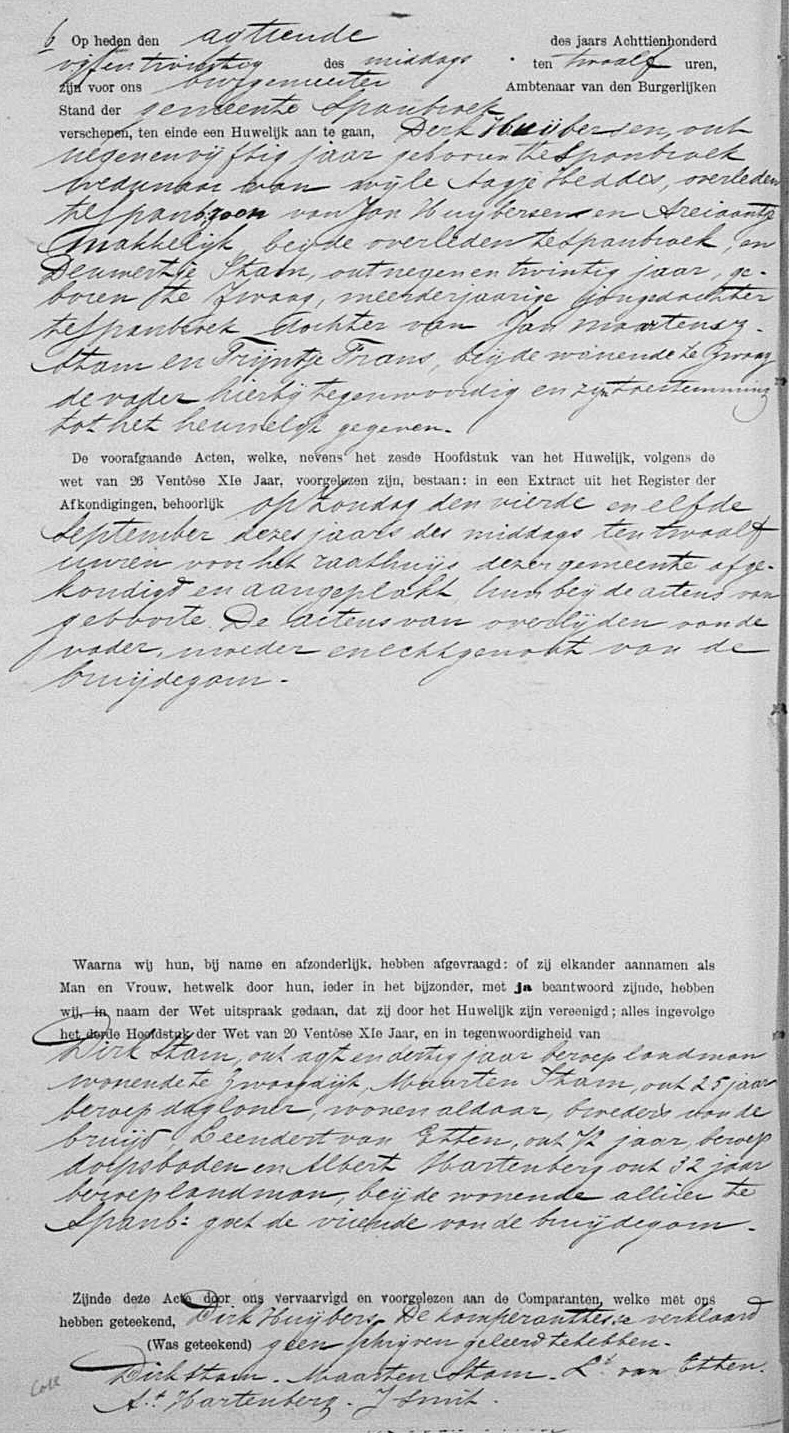 6 Op heden den agttiende des jaars Achttienhonderd
vijfentwintig des middags ten twaalf uren,
zijn voor ons burgemeester Ambtenaar van den Burgerlijken
Stand der gemeente Spanbroek
verschenen, ten einde een Huwelijk aan te gaan, Derk Huijbersen, out
negenenvijftig jaar geboren te Spanbroek
wedunaar van wijle Aagje Heddes, overleden
te Spanb: zoon van Jan Huijbersen en Areiaantje
Makkelijk, beyde overleden te Spanbroek, en
Deuwertje Stam, out negen en twintig jaar, ge-
boren te Zwaag, meerderjaarige jongedochter
te Spanbroek dochter van Jan Maartensz.
Stam en Trijntje Frans, beyde wonende te Zwaag
de vader hierbij tegenwoordig en zijn toestemming
tot het heuwelijk gegeven.
De voorafgaande Acten, welke, nevens het zesde Hoofdstuk van het Huwelijk, volgens de
wet van 26 Ventôse XIe Jaar, voorgelezen zijn, bestaan: in een Extract uit het Register der
Afkondigingen, behoorlijk op Zondag den vierde en elfde
September dezes jaars des middags ten twaalf
uuren voor het raathuijs dezer gemeente afge-
kondigd en aangeplakt, hun beyde actens van
geboorte. De actens van overlijden van de
vader, moeder en echtgenoot van de
bruijdegom.
Waarna wij hun, bij name en afzonderlijk, hebben afgevraagd: of zij elkander aannamen als
Man en Vrouw, hetwelk door hun, ieder in het bijzonder, met ja beantwoord zijnde, hebben
wij, in naam der Wet uitspraak gedaan, dat zij door het Huwelijk zijn vereenigd; alles ingevolge
het derde Hoofdstuk der Wet van 20 Ventôse XIe Jaar, en in tegenwoordigheid van
Dirk Stam, out agt en dertig jaar beroep landman
wonende te Zwaagdijk, Maarten Stam, out 25 jaar
beroep dagloner, wonen aldaar, broeders van de
bruijd, Leendert van Etten, out 72 jaar, beroep
dorpsboden en Albert Hartenberg out 32 jaar
beroep landman, beyde wonende alhier te
Spanb: goet de vriende van de bruijdegom.
Zijnde deze Acte door ons vervaarvigd en voorgelezen aan de Comparanten, welke met ons
hebben geteekend, Dirk Huijbers, De komperanthesse verklaard
(Was geteekend) geen schrijven geleerd te hebben.
Dirk Stam. Maarten Stam. Lt van Etten.
At Hartenberg. J Smit.